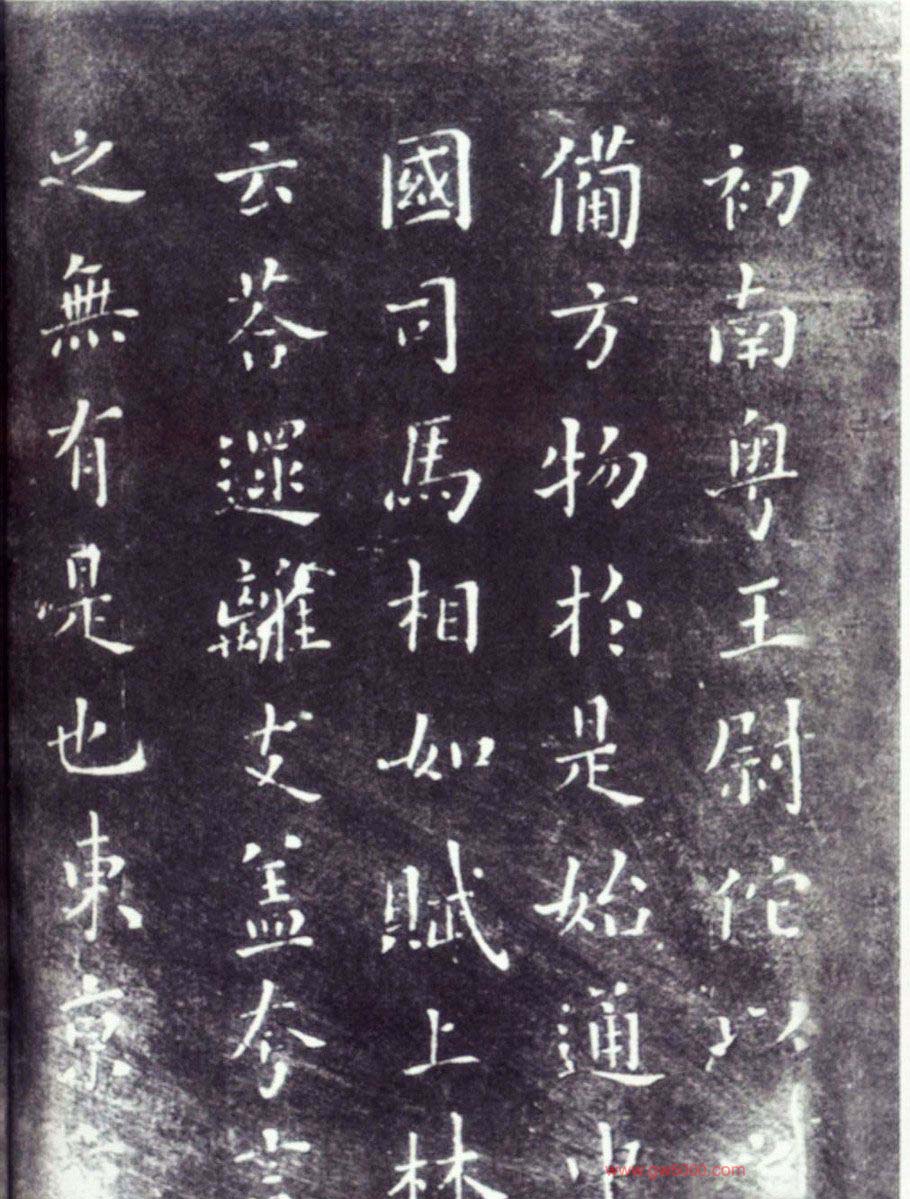 初南粤王尉佗以之
備方物於是始通中
國司馬相如賦上林
云荅遝離支盖夸言
之無有是也東京